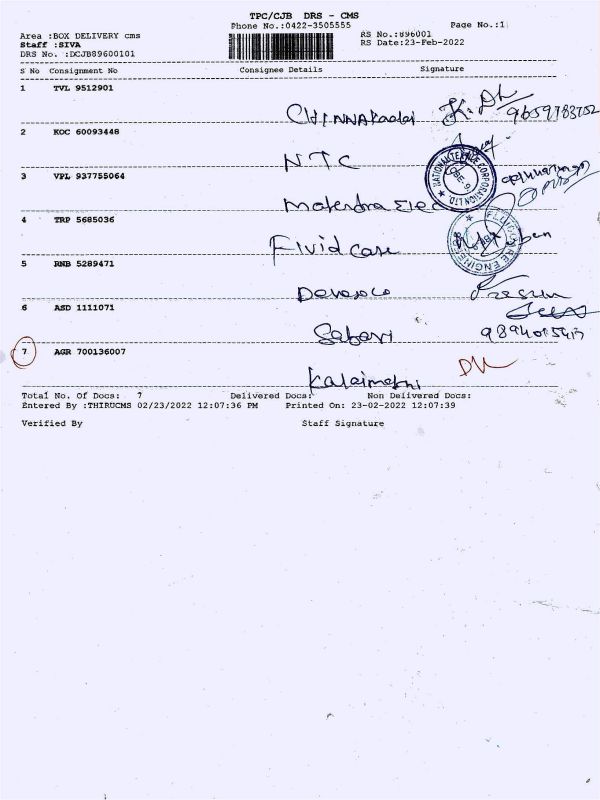 TPC/CJB DRS - CMS
Phone No.:0422-3505555 Page No.:1
Area :BOX DELIVERY cms RS No.:896001
Staff :SIVA RS Date:23-Feb-2022
DRS No. :DCJB89600101
S No Consignment No Consignee Details Signature
1 TVL 9512901
K. 9659783752
2 KOC 60093448
NTC
3 VPL 937755064
Mahendra Elec
4 TRP 5685036
Fluid care
5 RNB 5289471
6 ASD 1111071
Sabari
7 AGR 700136007
Kalaimani
Total No. Of Docs: 7 Delivered Docs: Non Delivered Docs:
Entered By :THIRUCMS 02/23/2022 12:07:36 PM Printed On: 23-02-2022 12:07:39
Verified By Staff Signature